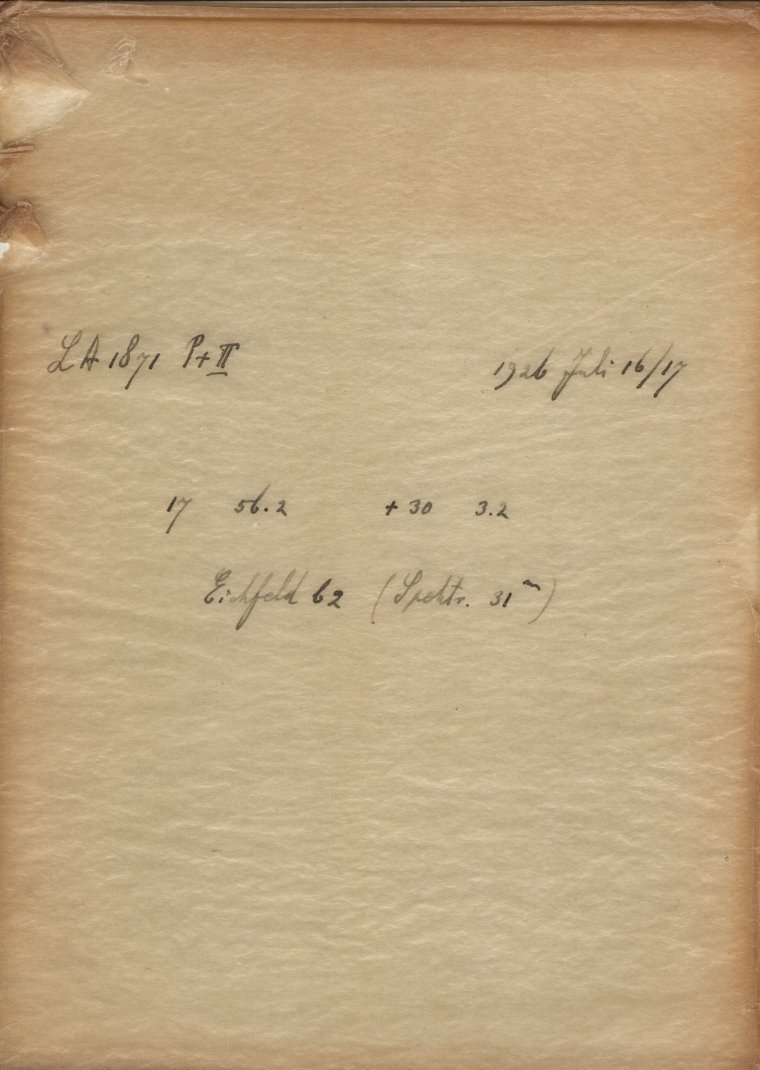 LA 1871 P+II 1926 Juli 16/17
17 56.2 +30 3.2
Eichfeld 62 (Spektr. 31ᵐ)